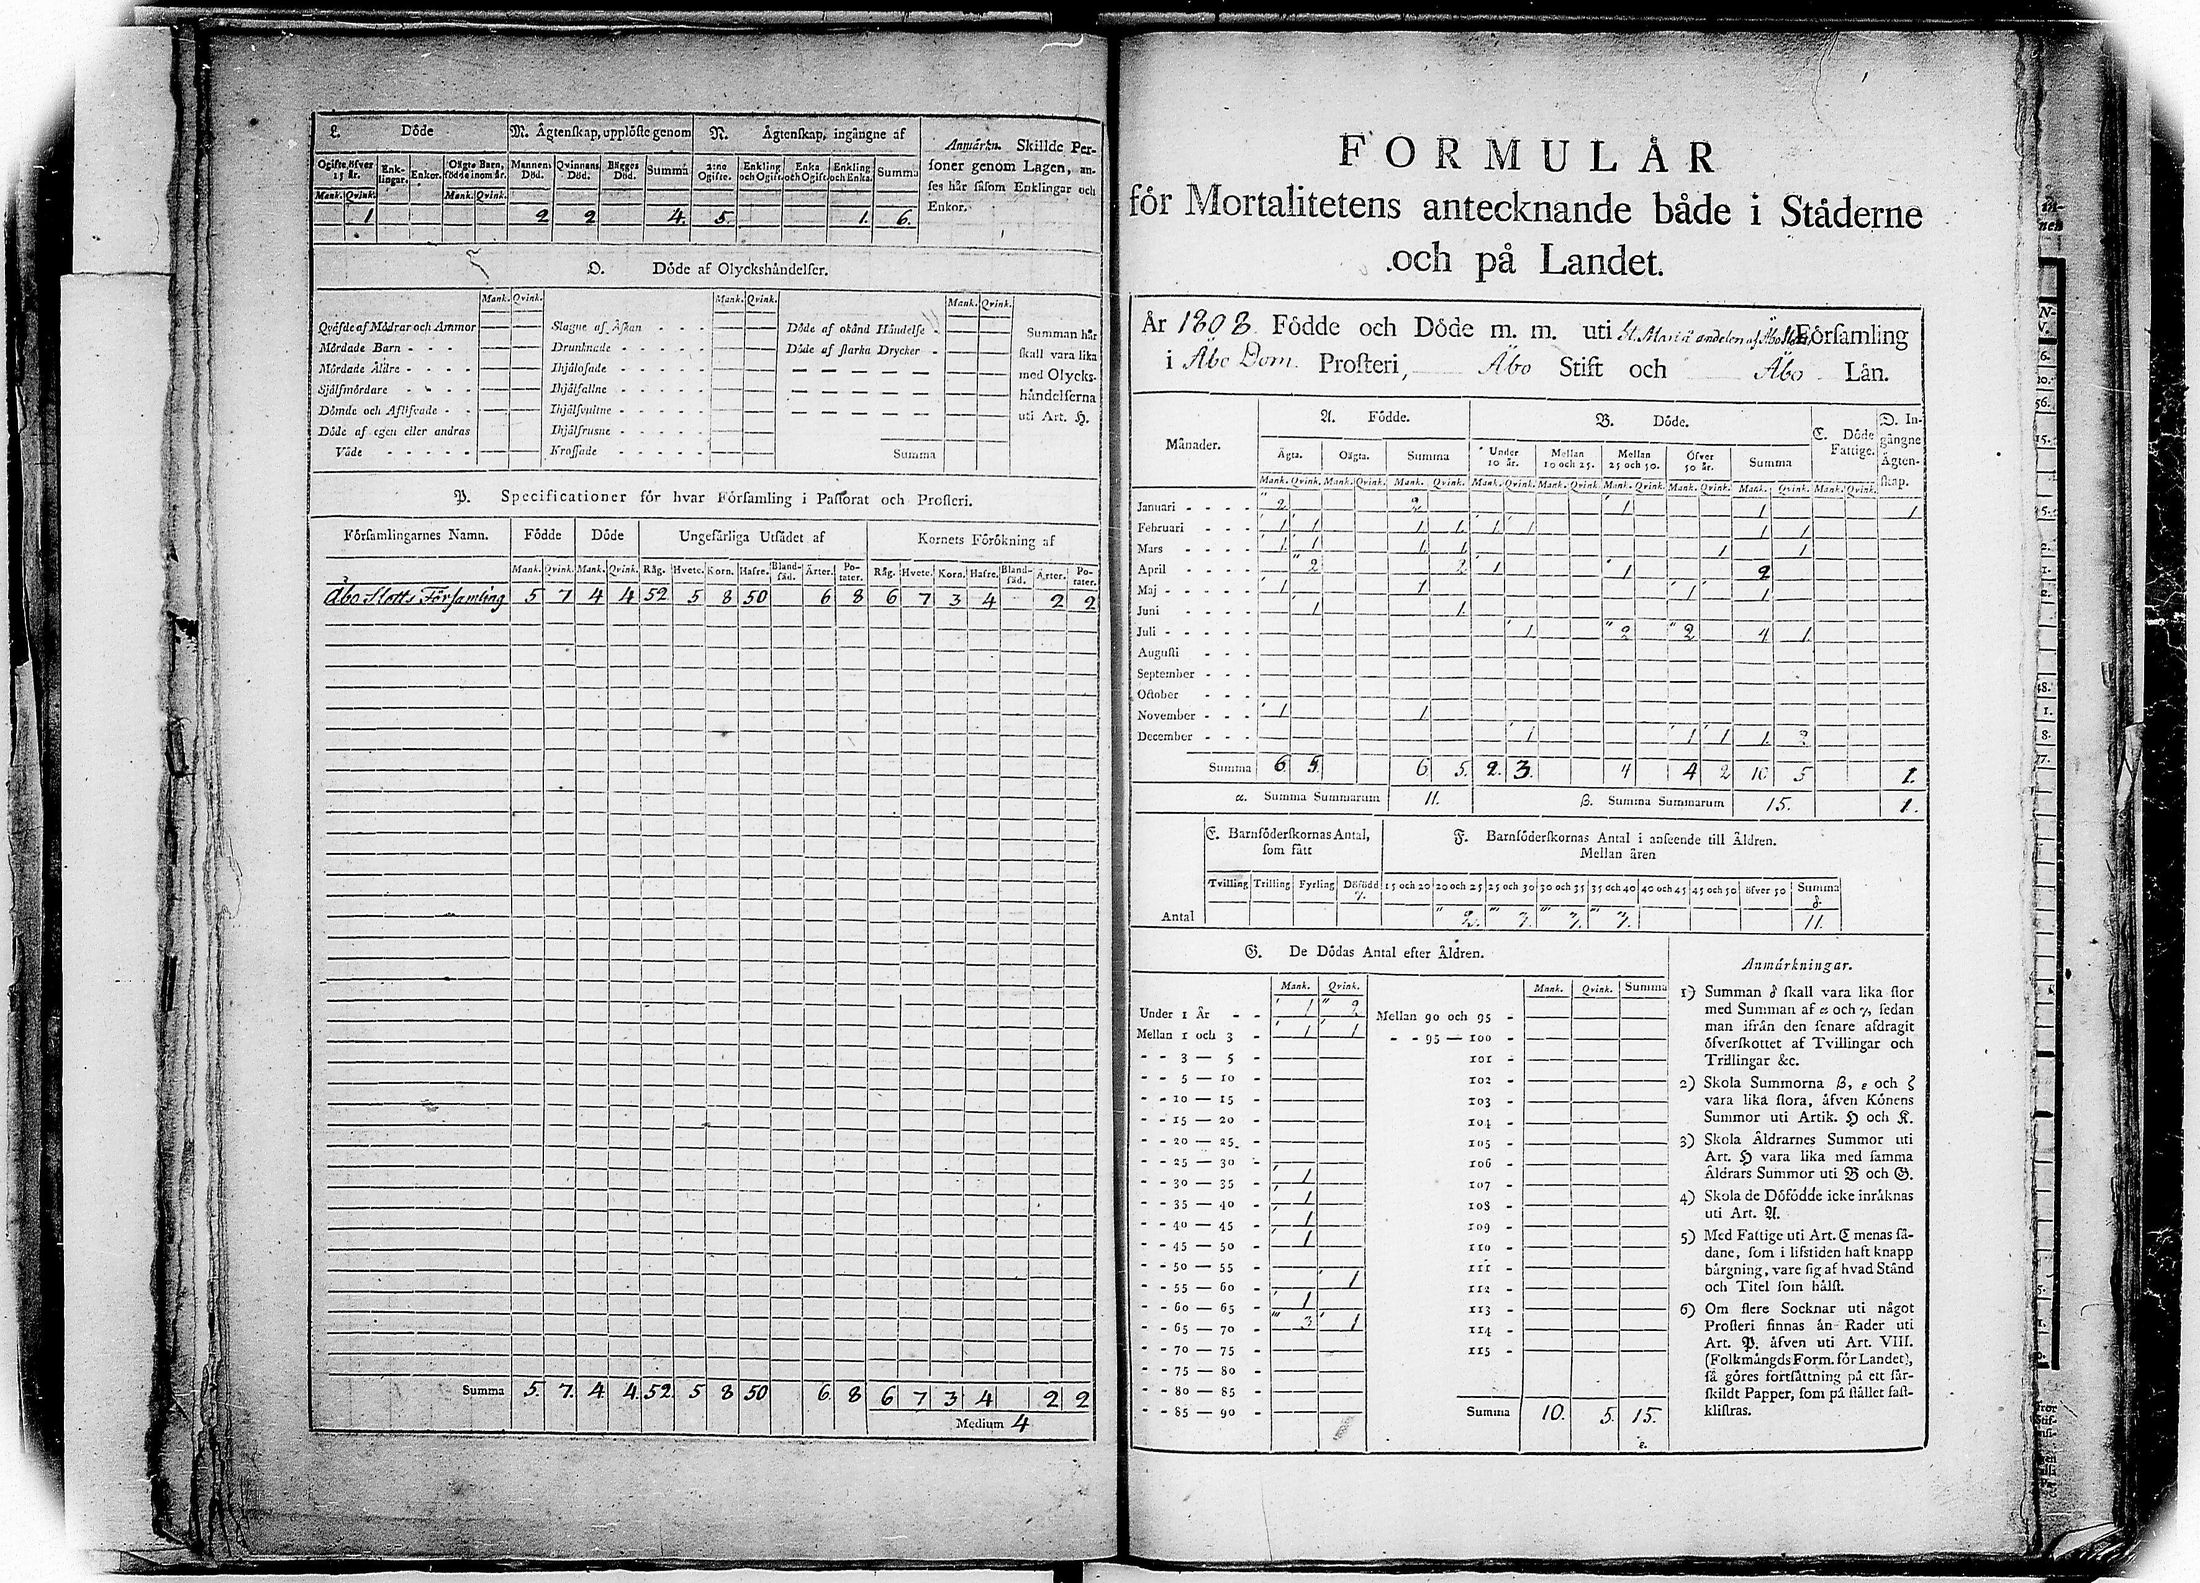 L. Döde
M. Ägtenskap, upplöste genom
N. Ägtenskap, ingångne af
Anmärkn. Skillde Personer
genom Lagen, anses
här såsom Enklingar och
Enkor.
Ogifte öfver 15 år. Enklingar. Enkor. Oägta Barn, födde inom år. Mannens Död. Qvinnans Död. Bägges Död. Summa 2:ne Ogifte. Enkling och Ogift. Enka och Ogift. Enkling och Enka. Summa
Mank. Qvink. Mank. Qvink.
1 2 2 4. 5. 1. 6.
O. Döde af Olyckshändelser.
Mank. Qvink. Mank. Qvink. Mank. Qvink.
Qväfde af Mödrar och Ammor Slagne af Åskan Döde af okänd Händelse
Mördade Barn Drunknade Döde af starka Drycker
Mördade Äldre Ihjälosade
Sjelfmördare Ihjälfallne
Dömde och Aflifvade Ihjälsvultne
Döde af egen eller andras Ihjälfrusne
Våde Krossade Summa
Summan här
skall vara lika
med Olyckshändelserna
uti Art. H.
P. Specificationer för hvar Församling i Pastorat och Prosteri.
Församlingarnes Namn. Födde Döde Ungefärliga Utsädet af Kornets Förökning af
Mank. Qvink. Mank. Qvink. Råg. Hvete. Korn. Hafre. Blandsäd. Ärter. Potater. Råg. Hvete. Korn. Hafre. Blandsäd. Ärter. Potater.
Åbo Slotts Församling 5 7 4 4 52 5 8 50 6 8 6 7 3 4 2 2
Summa 5. 7. 4 4. 52. 5 8 50 6. 8 6 7 3 4 2 2
Medium 4
FORMULÄR
för Mortalitetens antecknande både i Städerne
och på Landet.
År 1808 Födde och Döde m. m. uti St. Mariä andelen af Åbo Församling
i Åbo Dom. Prosteri, Åbo Stift och Åbo Län.
Månader. A. Födde. B. Döde. C. Döde Fattige. D. Ingångne Ägtenskap.
Ägta. Oägta. Summa Under 10 år. Mellan 10 och 25. Mellan 25 och 50. Öfver 50 år. Summa
Mank. Qvink. Mank. Qvink. Mank. Qvink. Mank. Qvink. Mank. Qvink. Mank. Qvink. Mank. Qvink. Mank. Qvink. Mank. Qvink.
Januari 2 2 1 1 1
Februari 1 1 1 1. 1 1 1 1
Mars 1 1 1 1 1 1
April 2 2 1 1 2
Maj 1 1 1 1
Juni 1 1.
Juli 1 2 2 4 1
Augusti
September
October
November 1 1
December 1 1 1 1 2
Summa 6 5. 6 5. 2. 3. 4 4 2 10 5 1.
α. Summa Summarum 11. β. Summa Summarum 15. 1.
E. Barnföderskornas Antal,
som fått
F. Barnföderskornas Antal i anseende till Åldren.
Mellan åren
Tvilling Trilling Fyrling Döfödd γ. 15 och 20 20 och 25 25 och 30 30 och 35 35 och 40 40 och 45 45 och 50 öfver 50 Summa δ.
Antal 2. 3. 3. 3. 11.
G. De Dödas Antal efter Åldren.
Mank. Qvink. Mank. Qvink. Summa
Under 1 År 1 2 Mellan 90 och 95
Mellan 1 och 3 1 1 95 — 100
3 — 5 101
5 — 10 102
10 — 15 103
15 — 20 104
20 — 25 105
25 — 30 106
30 — 35 1 107
35 — 40 1 108
40 — 45 1 109
45 — 50 1 110
50 — 55 111
55 — 60 1 112
60 — 65 1 113
65 — 70 3 1 114
70 — 75 115
75 — 80
80 — 85
85 — 90 Summa 10. 5. 15.
ε.
Anmärkningar.
1) Summan δ skall vara lika stor
med Summan af α och γ, sedan
man ifrån den senare afdragit
öfverskottet af Tvillingar och
Trillingar &c.
2) Skola Summorna β, ε och ζ
vara lika stora, äfven Könens
Summor uti Artik. H och K.
3) Skola Åldrarnes Summor uti
Art. H vara lika med samma
Åldrars Summor uti B och G.
4) Skola de Döfödde icke inräknas
uti Art. A.
5) Med Fattige uti Art. C menas sådane,
som i lifstiden haft knapp
bärgning, vare sig af hvad Stånd
och Titel som hälst.
6) Om flere Socknar uti något
Prosteri finnas än Rader uti
Art. P. äfven uti Art. VIII.
(Folkmängds Form. för Landet),
så göres fortsättning på ett särskildt
Papper, som på stället fastklistras.